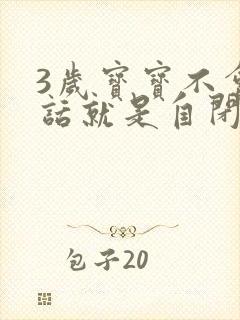 3岁宝宝不会
話就是自閉
包子20